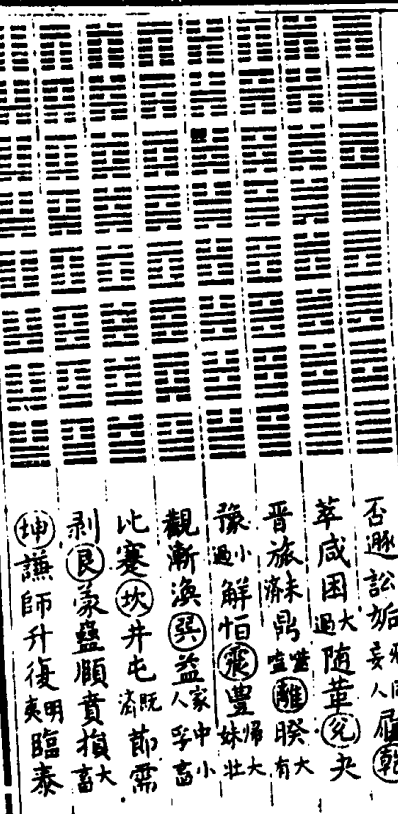 否遯訟姤无妄同人履乾
萃咸困大過随革兌夬
晋旅未済鼎噬嗑離睽大有
豫小過解恒震豊帰妹大壮
觀漸渙巽益家人中孚小畜
比蹇坎井屯既済節需
剥艮蒙蠱頤賁損大畜
坤謙師升復明夷臨泰